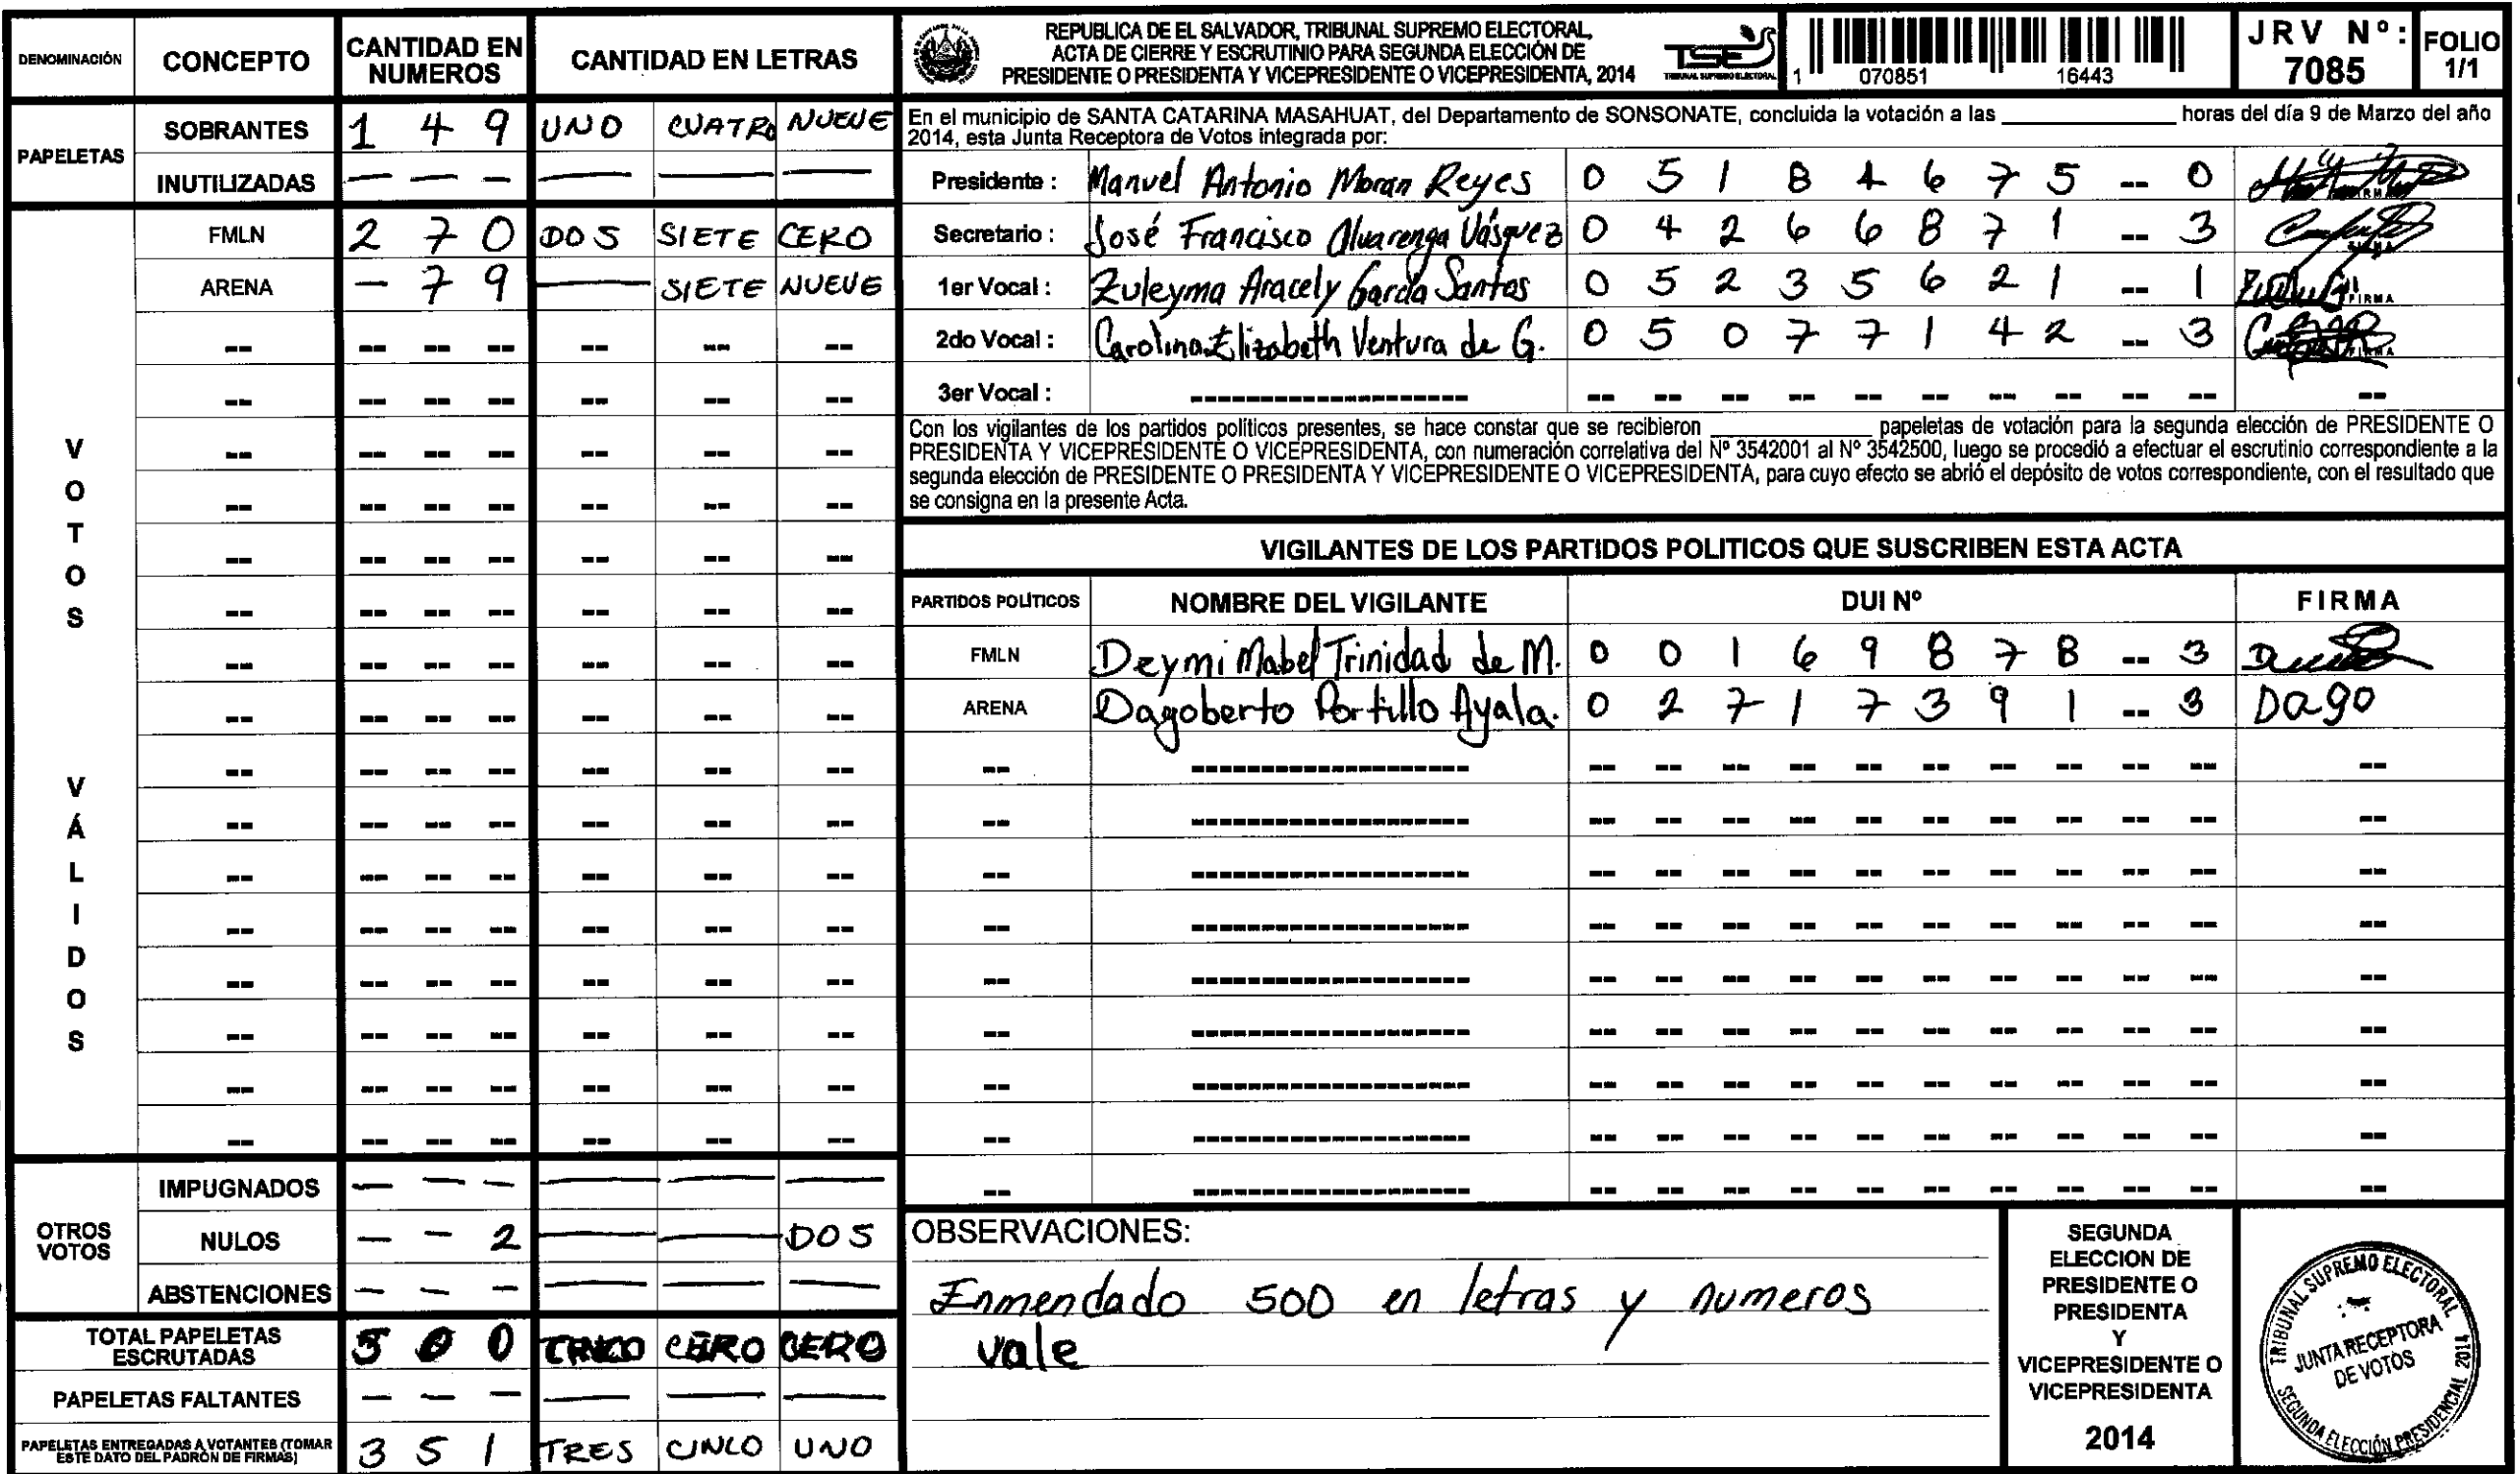 DENOMINACIÓN CONCEPTO CANTIDAD EN NUMEROS CANTIDAD EN LETRAS
PAPELETAS
SOBRANTES 1 4 9 UNO CUATRO NUEVE
INUTILIZADAS — — — — — —
VOTOS VÁLIDOS
FMLN 2 7 0 DOS SIETE CERO
ARENA — 7 9 — SIETE NUEVE
OTROS VOTOS
IMPUGNADOS — — — — — —
NULOS — — 2 — — DOS
ABSTENCIONES — — — — — —
TOTAL PAPELETAS ESCRUTADAS 5 0 0 CERO CERO
PAPELETAS FALTANTES — — — — — —
PAPELETAS ENTREGADAS A VOTANTES (TOMAR ESTE DATO DEL PADRÓN DE FIRMAS) 3 5 1 TRES CINCO UNO
REPUBLICA DE EL SALVADOR, TRIBUNAL SUPREMO ELECTORAL,
ACTA DE CIERRE Y ESCRUTINIO PARA SEGUNDA ELECCIÓN DE
PRESIDENTE O PRESIDENTA Y VICEPRESIDENTE O VICEPRESIDENTA, 2014
TSE
TRIBUNAL SUPREMO ELECTORAL
1 070851 16443
JRV Nº: 7085
FOLIO 1/1
En el municipio de SANTA CATARINA MASAHUAT, del Departamento de SONSONATE, concluida la votación a las ____________ horas del día 9 de Marzo del año
2014, esta Junta Receptora de Votos integrada por:
Presidente : Manuel Antonio Moran Reyes 0 5 1 8 4 6 7 5 -- 0
Secretario : José Francisco Alvarenga Vásquez 0 4 2 6 6 8 7 1 -- 3
1er Vocal : Zuleyma Aracely García Santos 0 5 2 3 5 6 2 1 -- 1 FIRMA
2do Vocal : Carolina Elizabeth Ventura de G. 0 5 0 7 7 1 4 2 -- 3
3er Vocal :
Con los vigilantes de los partidos políticos presentes, se hace constar que se recibieron ____________ papeletas de votación para la segunda elección de PRESIDENTE O
PRESIDENTA Y VICEPRESIDENTE O VICEPRESIDENTA, con numeración correlativa del Nº 3542001 al Nº 3542500, luego se procedió a efectuar el escrutinio correspondiente a la
segunda elección de PRESIDENTE O PRESIDENTA Y VICEPRESIDENTE O VICEPRESIDENTA, para cuyo efecto se abrió el depósito de votos correspondiente, con el resultado que
se consigna en la presente Acta.
VIGILANTES DE LOS PARTIDOS POLITICOS QUE SUSCRIBEN ESTA ACTA
PARTIDOS POLÍTICOS NOMBRE DEL VIGILANTE DUI Nº FIRMA
FMLN Deymi Mabel Trinidad de M. 0 0 1 6 9 8 7 8 -- 3
ARENA Dagoberto Portillo Ayala. 0 2 7 1 7 3 9 1 -- 3 Dago
OBSERVACIONES:
Enmendado 500 en letras y numeros
vale
SEGUNDA
ELECCION DE
PRESIDENTE O
PRESIDENTA
Y
VICEPRESIDENTE O
VICEPRESIDENTA
2014
TRIBUNAL SUPREMO ELECTORAL
JUNTA RECEPTORA
DE VOTOS
SEGUNDA ELECCIÓN PRESIDENCIAL 2014